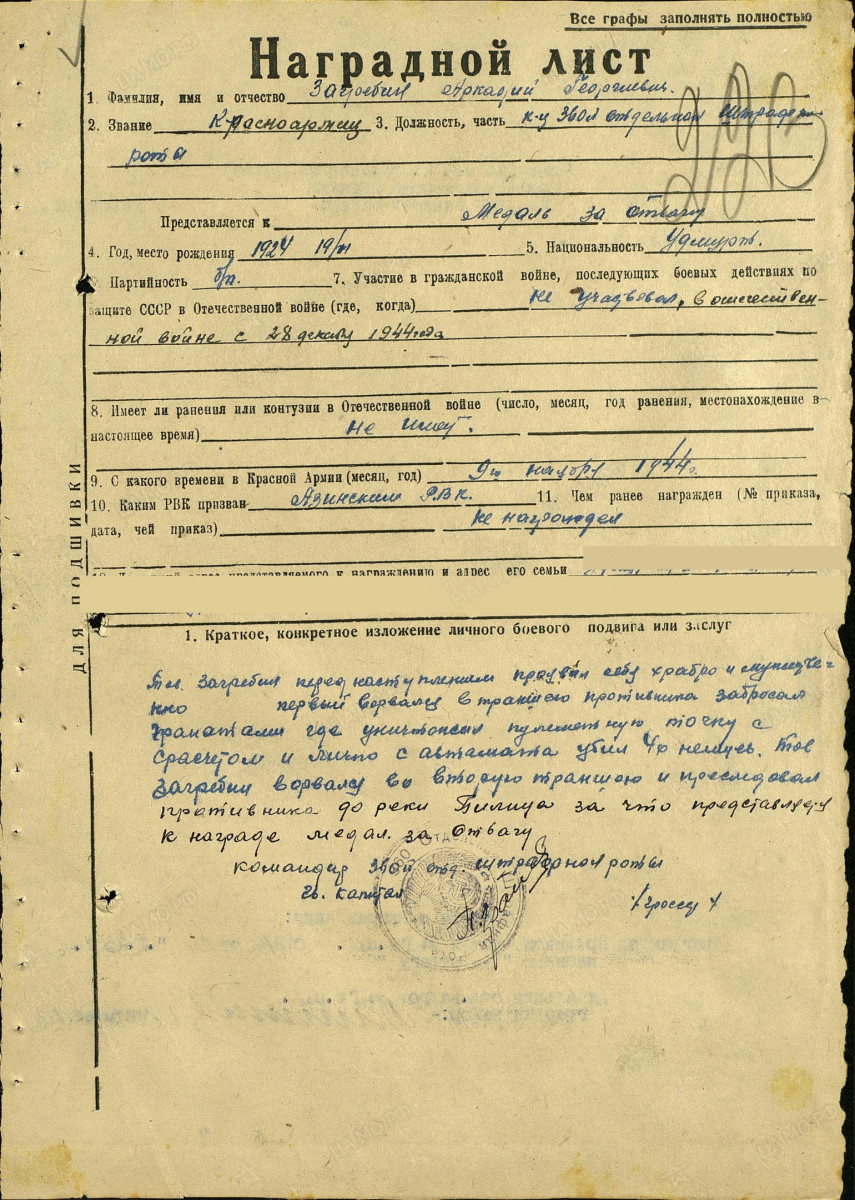 Все графы заполнять полностью
Наградной лист
1. Фамилия, имя и отчество Загребин Аркадий Георгиевич.
2. Звание Красноармиец 3. Должность, часть к-ц 360й отдельной штрафной
роты
Представляется к Медаль за отвагу
4. Год, место рождения 1924 5. Национальность Удмурт.
Партийность б/п. 7. Участие в гражданской войне, последующих боевых действиях по
защите СССР в Отечественной войне (где, когда) не учавствовал, в отечествен-
ной войне с 28 декабр 1944 года
8. Имеет ли ранения или контузии в Отечественной войне (число, месяц, год ранения, местонахождение в
настоящее время) не имеет.
9. С какого времени в Красной Армии (месяц, год) 9го ноября 1944г.
10. Каким РВК призван Азинским РВК. 11. Чем ранее награжден (№ приказа,
дата, чей приказ) не награжден
представляемого к награждению и адрес его семьи
ДЛЯ ПОДШИВКИ
1. Краткое, конкретное изложение личного боевого подвига или заслуг
Тов. Загребин перед наступлением проявил себя храбро и мужестве-
нно первый ворвался в траншею противника забросал
гранатами где уничтожил пулеметную точку с
срасчетом и лично с автамата убил 4х немцев. Тов
Загребин ворвался во вторую траншою и преследовал
противника до реки Пилица за что представляется
к награде медал. за Отвагу
командир 360й отд. штрафной роты
гв. капитан